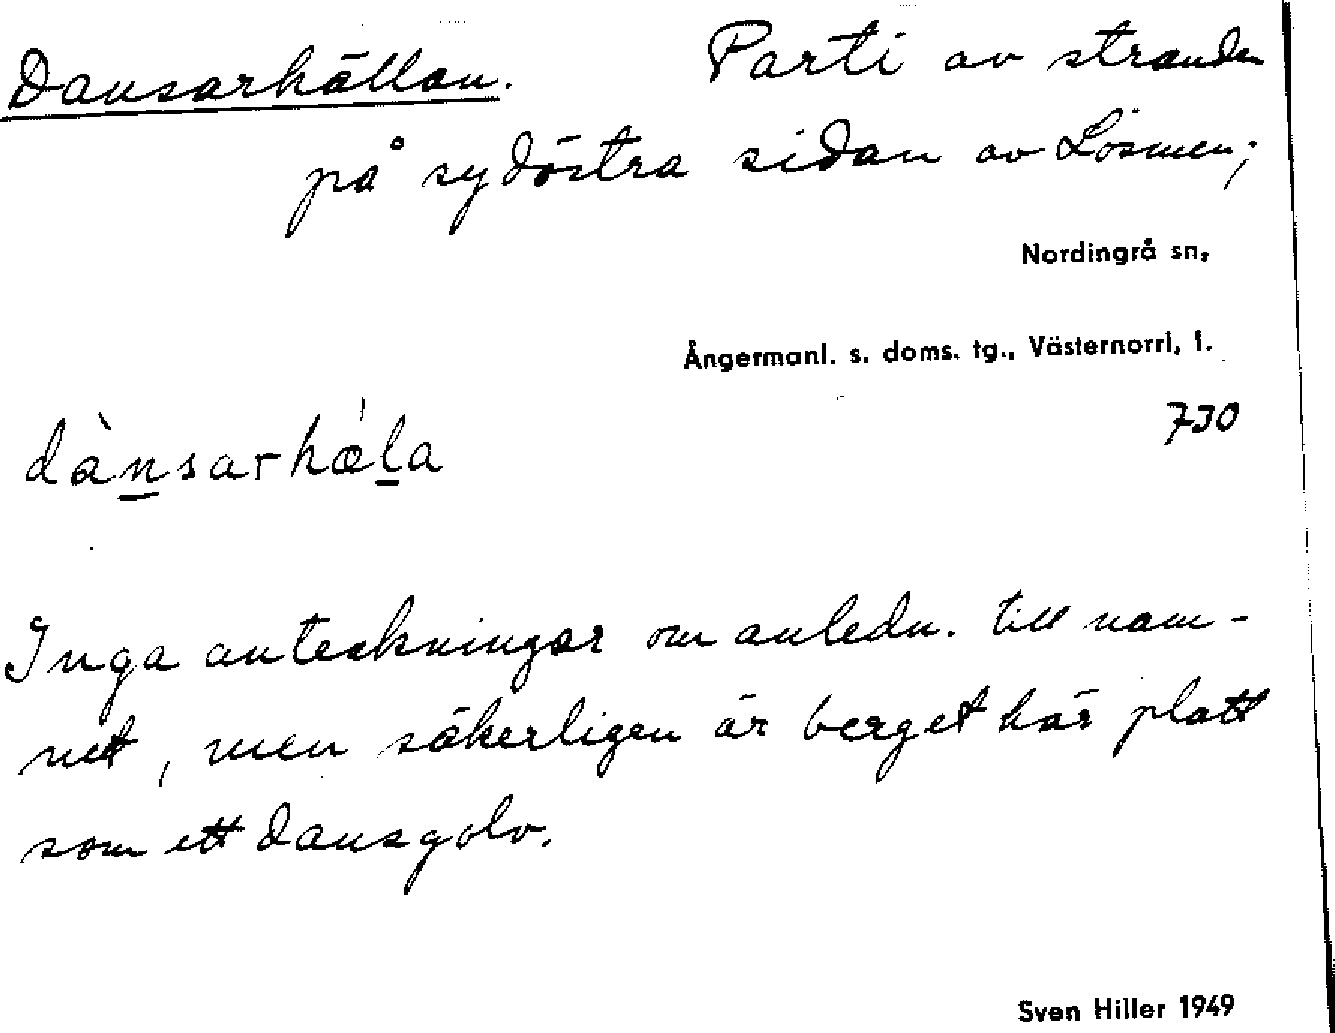 Dansarhällan. Parti av stranden
på sydöstra sidan av Lösmen;
Nordingrå sn,
Ångermanl. s. doms. tg., Västernorrl, l.
730
dànsarhæ̀la
Inga anteckningar om anledn. till nam-
net, men säkerligen är berget här platt
som ett dansgolv.
Sven Hiller 1949